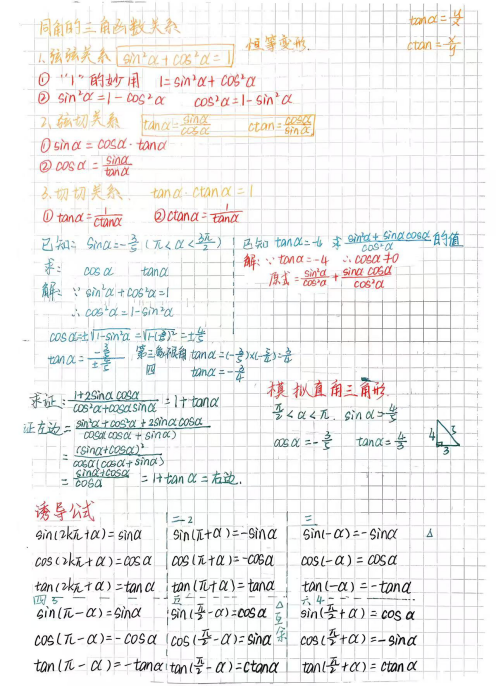 同角的三角函数关系
tanα=y/x
1.弦弦关系 sin²α+cos²α=1 恒等变形.
ctan=x/y
① "1"的妙用 1=sin²α+cos²α
② sin²α=1-cos²α cos²α=1-sin²α
2、弦切关系 tanα=sinα/cosα ctan=cosα/sinα
① sinα=cosα·tanα
② cosα=sinα/tanα
3.切切关系. tanα·ctanα=1
① tanα=1/ctanα ② ctanα=1/tanα
已知: sinα=-3/5 (π<α<3π/2)
求: cosα tanα
解: ∵ sin²α+cos²α=1
∴ cos²α=1-sin²α
cosα=±√1-sin²α=√1-(3/5)²=±4/5
tanα=-3/5/±4/5 第三象限角 tanα=(-3/5)×(-5/4)=3/4
四 tanα=-3/4
已知 tanα=-4 求 sin²α+sinαcosα/cos²α 的值
解: ∵ tanα=-4 ∴cosα≠0
原式=sin²α/cos²α+sinαcosα/cos²α
求证: 1+2sinαcosα/cos²α+cosαsinα=1+tanα
证左边=sin²α+cos²α+2sinαcosα/cosα(cosα+sinα)
=(sinα+cosα)²/cosα(cosα+sinα)
=sinα+cosα/cosα=1+tanα=右边.
模拟直角三角形
π/2<α<π, sinα=4/5
cosα=-3/5 tanα=4/3
4 5
3
诱导公式
二 2
三
sin(2kπ+α)=sinα sin(π+α)=-sinα sin(-α)=-sinα
cos(2kπ+α)=cosα cos(π+α)=-cosα cos(-α)=cosα
tan(2kπ+α)=tanα tan(π+α)=tanα tan(-α)=-tanα
四 5 五 六 4
sin(π-α)=sinα sin(π/2-α)=cosα sin(π/2+α)=cosα
cos(π-α)=-cosα cos(π/2-α)=sinα cos(π/2+α)=-sinα
互余
tan(π-α)=-tanα tan(π/2-α)=ctanα tan(π/2+α)=ctanα